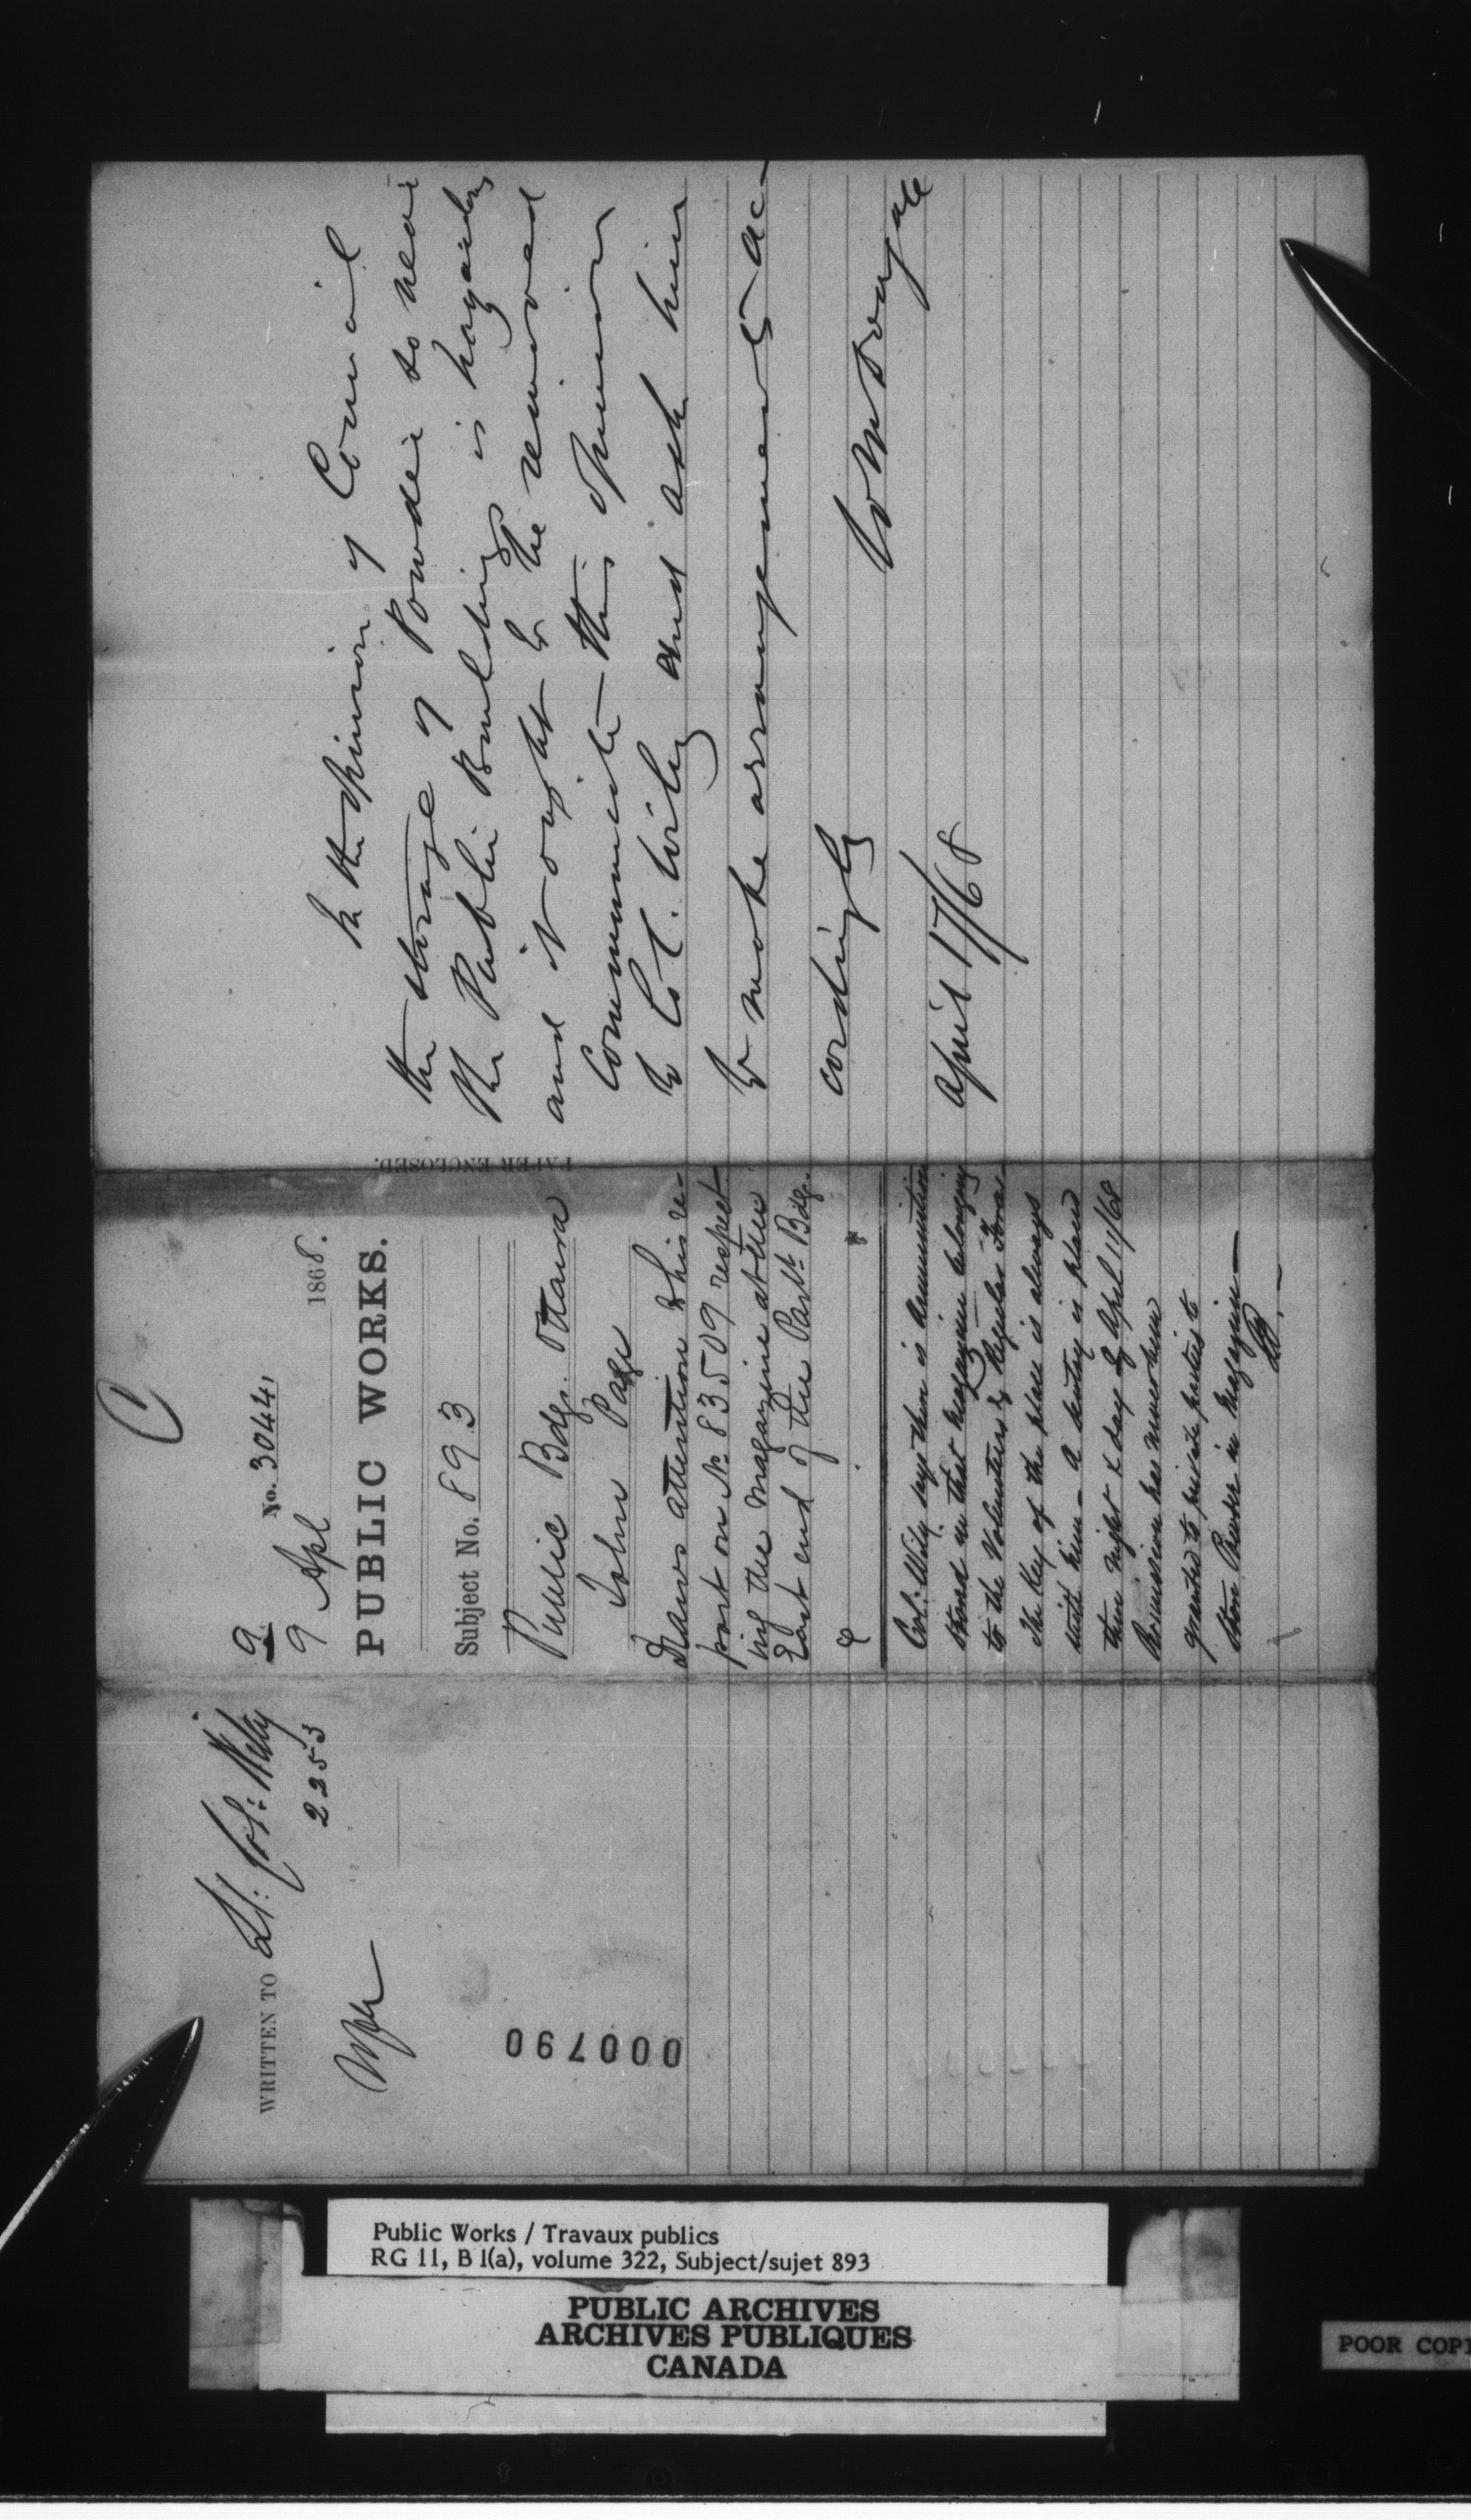 WRITTEN TO Lt. Col. Wily
2253
000790
C
9 No. 3044,
9 Apl 1868.
PUBLIC WORKS.
Subject No. 893
Public Bdgs. Ottawa
John Page
Draws attention to his re-
port on No. 83509 respect-
ing the Magazine at the
East end of the Parlt. Bdg.
Col. Wily says there is ammunition
stored in that magazine belonging
to the Volunteers & Regular Force
The Key of the place is always
with him - A sentry is placed
there night & day April 11/68
Permission has never been
granted to private parties to
store Powder in Magazine -
PAPER ENCLOSED.
In the opinion of Council
the storage of Powder so near
the Public Buildings is hazardous
and it ought to be removed
Communicate this opinion
to Col. Wily and ask him
to make arrangements ac-
cordingly
Wm McDougall
April 17/68
Public Works / Travaux publics
RG 11, B 1(a), volume 322, Subject/sujet 893
PUBLIC ARCHIVES
ARCHIVES PUBLIQUES
CANADA
POOR COPY